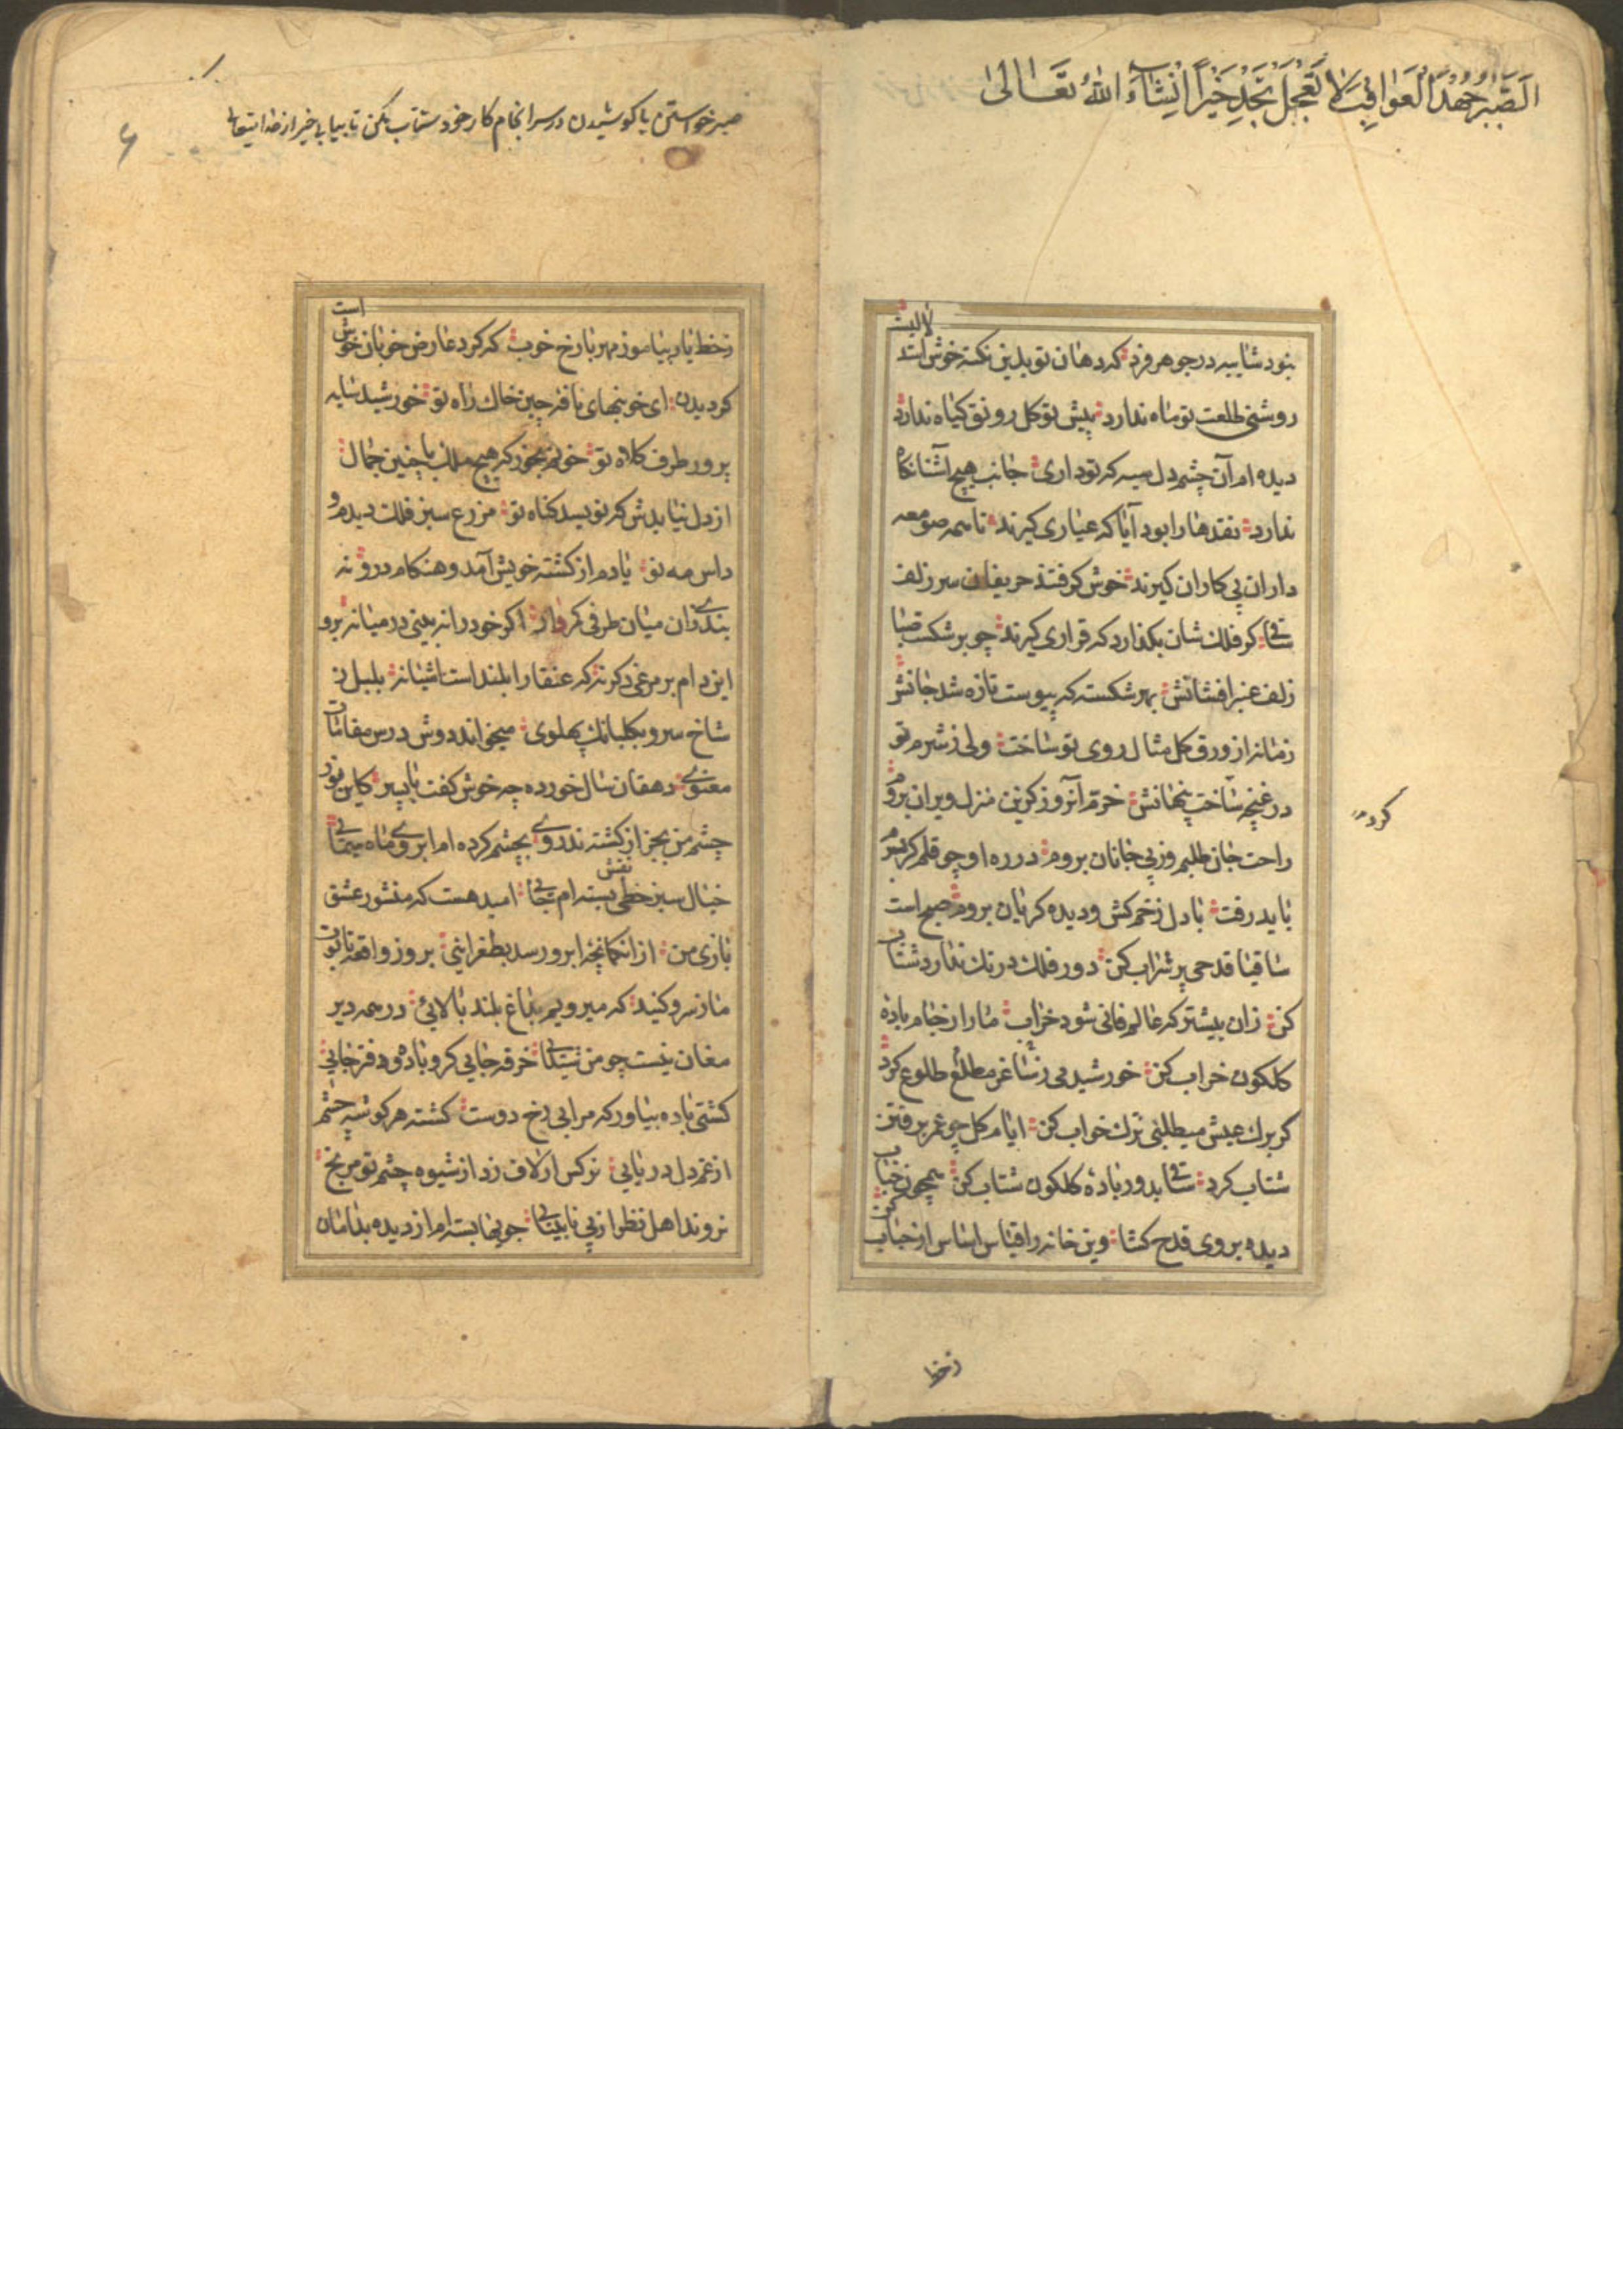 اَلصَّبْرُ جُهْدًا لْعَوَاقِبَ لَا تَعْجَلْ تَجِدْ خَيْرًا اِنْشَاءَ اللهُ تَعَالٰى
لالیست
بنود شایبه در جوهر فرد که دهان تو بدین نکته خوش استد
روشنی طلعت تو ماه ندارد پیش تو کل رونق کیاه ندارد
دیده ام آن چشم دل سیه که تو داری جانب هیچ آشنا نکاه
ندارد نقدها را بود آیا که عیاری کیرند تا همه صومعه
داران پی کاران کیرند خوش کرفتند حریفان سر زلف
ساقی کر فلک شان بکذارد که قراری کیرند چو بر شکست صبا
زلف عنبر افشانش بهر شکسته که پیوست تازه شد جانش
زمانه از ورق کل مثال روی تو ساخت ولی ز شرم تو
در غنچه ساخت پنهانش خرم آنروز کزین منزل ویران بروم
راحت جان طلبم وز پی جانان بروم در ره او چو قلم کر بسرم
باید رفت با دل زخم کش و دیده کریان بروم صبح است
ساقیا قدحی پر شراب کن دور فلک درنک ندارد شتاب
کن زان پیشتر که عالم فانی شود خراب ما را ز جام باده
کلکون خراب کن خورشید می ز ساغر مطلع طلوع کرد
کر برک عیش میطلبی ترک خواب کن ایام کل چو عمر برفتن
شتاب کرد ساقی بدور باده کلکون شتاب کن همچون حباب
دیده بروی قدح کشا وین خانه را قیاس اساس از حباب کن
کردم
زخط
صبر خواستن با کوشیدن در سرانجام کار خود شتاب مکن تا بیابی خیر از خدایتعالی
۶
است
زخط یار بیاموز مهر با رخ خوب که کرد عارض خوبان خوش
کردیدن ای خونبهای نافه چین خاک راه تو خورشید سایه
پرور طرف کلاه تو خونم بخور که هیچ ملک با چنین جمال
از دل نیایدش که نویسد کناه تو مزرع سبز فلک دیدم و
داس مه نو یادم از کشته خویش آمد و هنکام درو نه
بندی زان میان طرفی کمروار اکر خود را نه بینی در میانه برو
این دام بر مرغ دکر نه که عنقا را بلند است اشیانه بلبل ز
شاخ سرو بکلبانک پهلوی میخواند دوش درس مقامات
معنوی دهقان سال خورده چه خوش کفت با پسر کاین نور
چشم من بجز از کشته ندروی بچشم کرده ام ابروی ماه سیمائی
خیال سبز خطی نقش بسته ام جائی امید هست که منشور عشق
بازی من از ان کمانچه ابرو رسد بطغرایی بروز واقعه تابوت
ما ز سرو کنید که میرویم بداغ بلند بالائی در همه دیر
مغان نیست چو من شیدائی خرقه جایی کرو باده و دفتر جایی
کشتی باده بیاور که مرا بی رخ دوست کشته هر کوشه چشم
از غم دل دریایی نرکس ار لاف زد از شیوه چشم تو مرنج
نروند اهل نظر از پی نابینائی جویها بسته ام از دیده بدامان